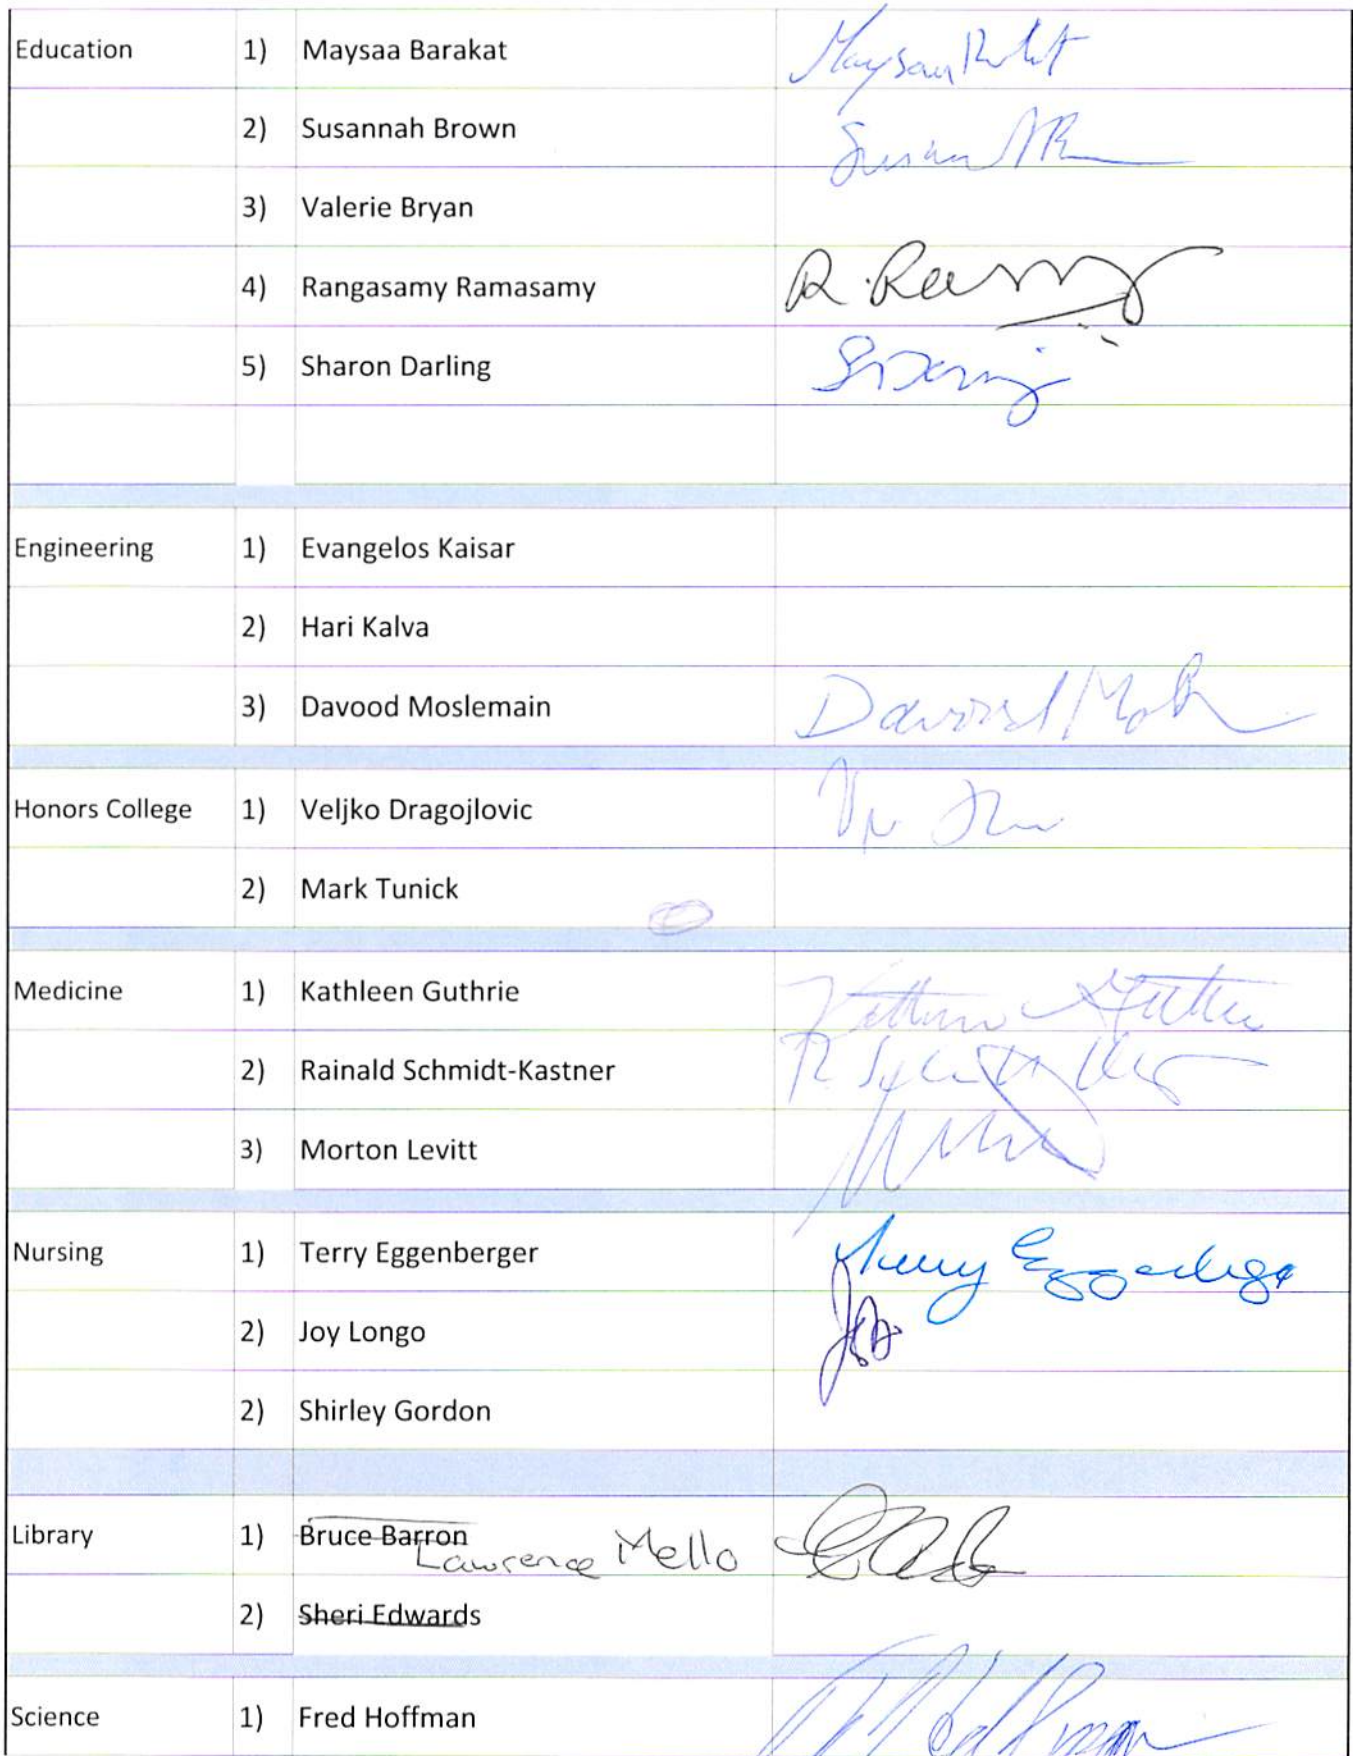 Education 1) Maysaa Barakat
2) Susannah Brown
3) Valerie Bryan
4) Rangasamy Ramasamy R.
5) Sharon Darling
Engineering 1) Evangelos Kaisar
2) Hari Kalva
3) Davood Moslemain Davood
Honors College 1) Veljko Dragojlovic
2) Mark Tunick
Medicine 1) Kathleen Guthrie
2) Rainald Schmidt-Kastner
3) Morton Levitt
Nursing 1) Terry Eggenberger Terry Eggenberger
2) Joy Longo
2) Shirley Gordon
Library 1) Bruce Barron
Lawrence Mello
2) Sheri Edwards
Science 1) Fred Hoffman